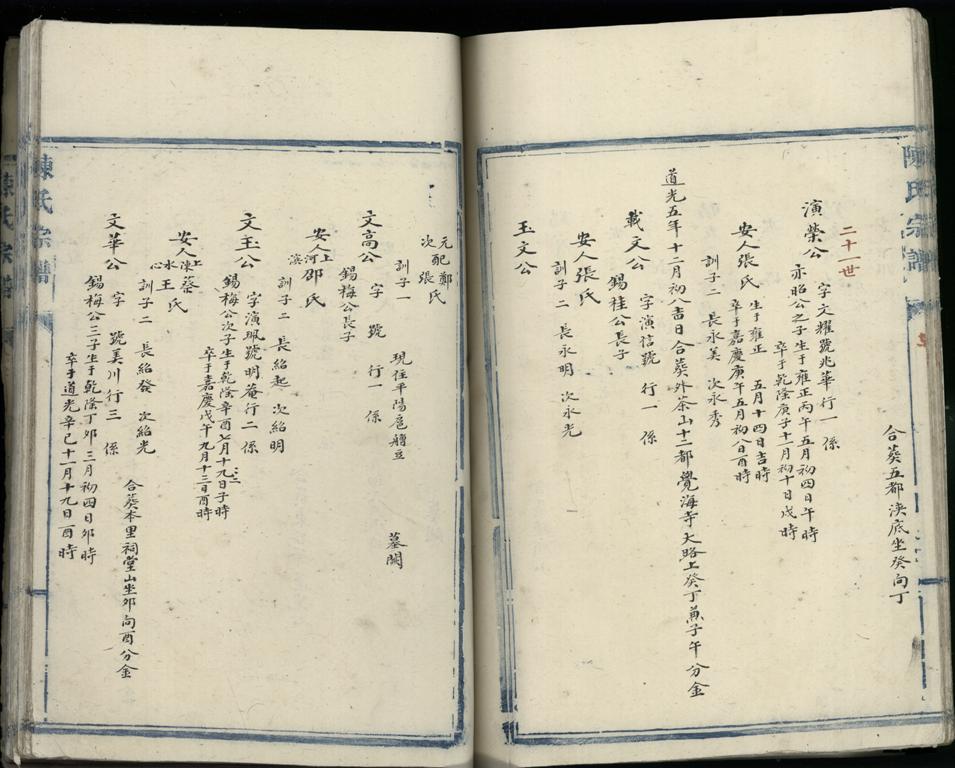 陳氏宗譜
合葵五都決底坐癸向丁
二十一世
演榮公 字文耀號兆華行一 係
亦昭公之子生于雍正丙午五月初四日午時
卒于乾隆庚子十一月初十日戌時
安人張氏 生于雍正 五月十四日吉時
卒于嘉慶庚午五月初八日酉時
訓子二 長永美 次永秀
道光五年十二月初八吉日合葵外茶山十二都覺海寺大路上癸丁兼子午分金
載文公 字演信號 行一 係
錫桂公長子
安人張氏
訓子二 長永明 次永光
玉文公
元配鄭氏
次 張
訓子一 現住平陽 墓闕
文高公 字 號 行一 係
錫梅公長子
安人上河濱邵氏
訓子二 長紹起 次紹明
文玉公 字演珮號明菴行二 係
錫梅公次子生于乾隆辛酉七月十九日子時
卒于嘉慶戊午九月十三日酉時
安人上湶藔水心王氏
訓子二 長紹發 次紹光
合葵本里祠堂山坐夘向酉分金
文華公 字 號美川行三 係
錫梅公三子生于乾隆丁夘三月初四日夘時
卒于道光辛巳十一月十九日酉時
陳氏宗譜
陳氏宗譜